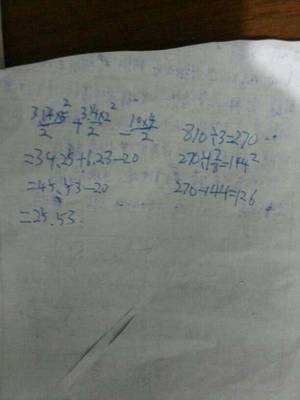 3.14×5²/2 + 3.14×2²/2 - 10×4/2
=39.25+6.28-20
=45.53-20
=25.53
810÷3=270
270-144=126